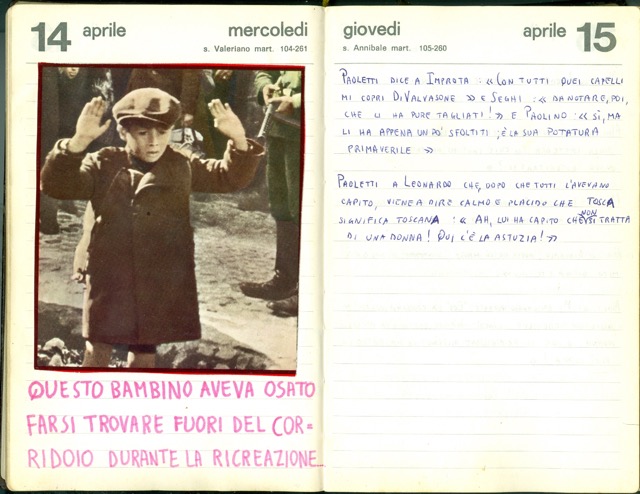 14 aprile mercoledi
s. Valeriano mart. 104-261
QUESTO BAMBINO AVEVA OSATO
FARSI TROVARE FUORI DEL COR=
RIDOIO DURANTE LA RICREAZIONE...
giovedi aprile 15
s. Annibale mart. 105-260
PAOLETTI DICE A IMPROTA: «CON TUTTI QUEI CAPELLI
MI COPRI DIVALVASONE» E SEGHI: «DA NOTARE, POI,
CHE LI HA PURE TAGLIATI!» E PAOLINO: «SÌ, MA
LI HA APPENA UN PO' SFOLTITI; È LA SUA POTATURA
PRIMAVERILE»
PAOLETTI A LEONARDO CHE, DOPO CHE TUTTI L'AVEVANO
CAPITO, VIENE A DIRE CALMO E PLACIDO CHE TOSCA
SIGNIFICA TOSCANA: «AH, LUI HA CAPITO CHE NON SI TRATTA
DI UNA DONNA! QUI C'È LA ASTUZIA!»